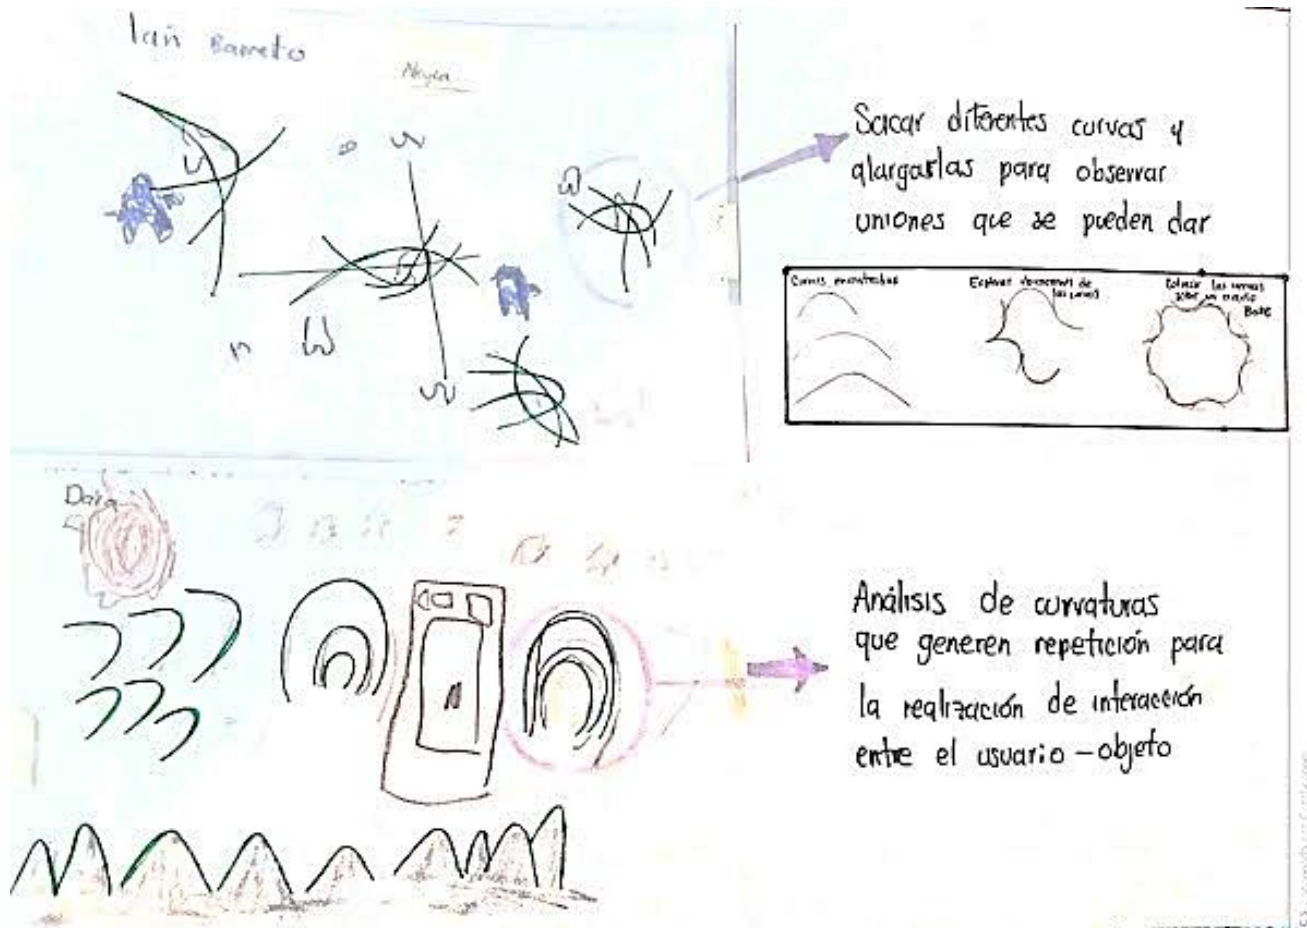 Ian Barreto
Neyra
Sacar diferentes curvas y
alargarlas para observar
uniones que se pueden dar
Curvas encontradas
Explorar de
las curvas
Colocar las curvas
sobre un circulo
Base
Dara
Análisis de curvaturas
que generen repetición para
la realización de interacción
entre el usuario - objeto